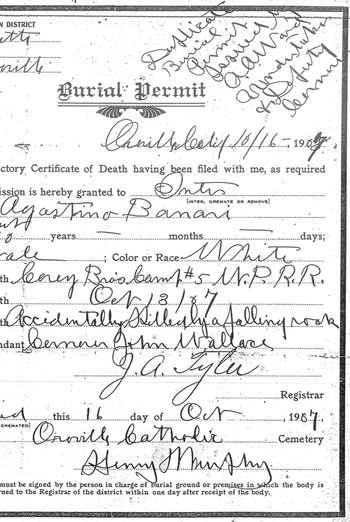 N DISTRICT
Duplicate
Burial
Permit
Issued by
A. A. Ward
Undertaker
Burial Permit
Oroville, Calif 10/16 – 1907
actory Certificate of Death having been filed with me, as required
ission is hereby granted to Inter
[INTER, CREMATE OR REMOVE]
Agastino Banari
years — months — days;
ale ; Color or Race White
th Corey Bros Camp #5 W. P. R. R.
th Oct 13/07
th Accidentally killed by a falling rock
ndant Coroner John Wallace
J. A. Tyler
Registrar
ed this 16 day of Oct 1907.
CREMATED)
Oroville Catholic Cemetery
Henry Murphy
must be signed by the person in charge of burial ground or premises in which the body is
rned to the Registrar of the district within one day after receipt of the body.